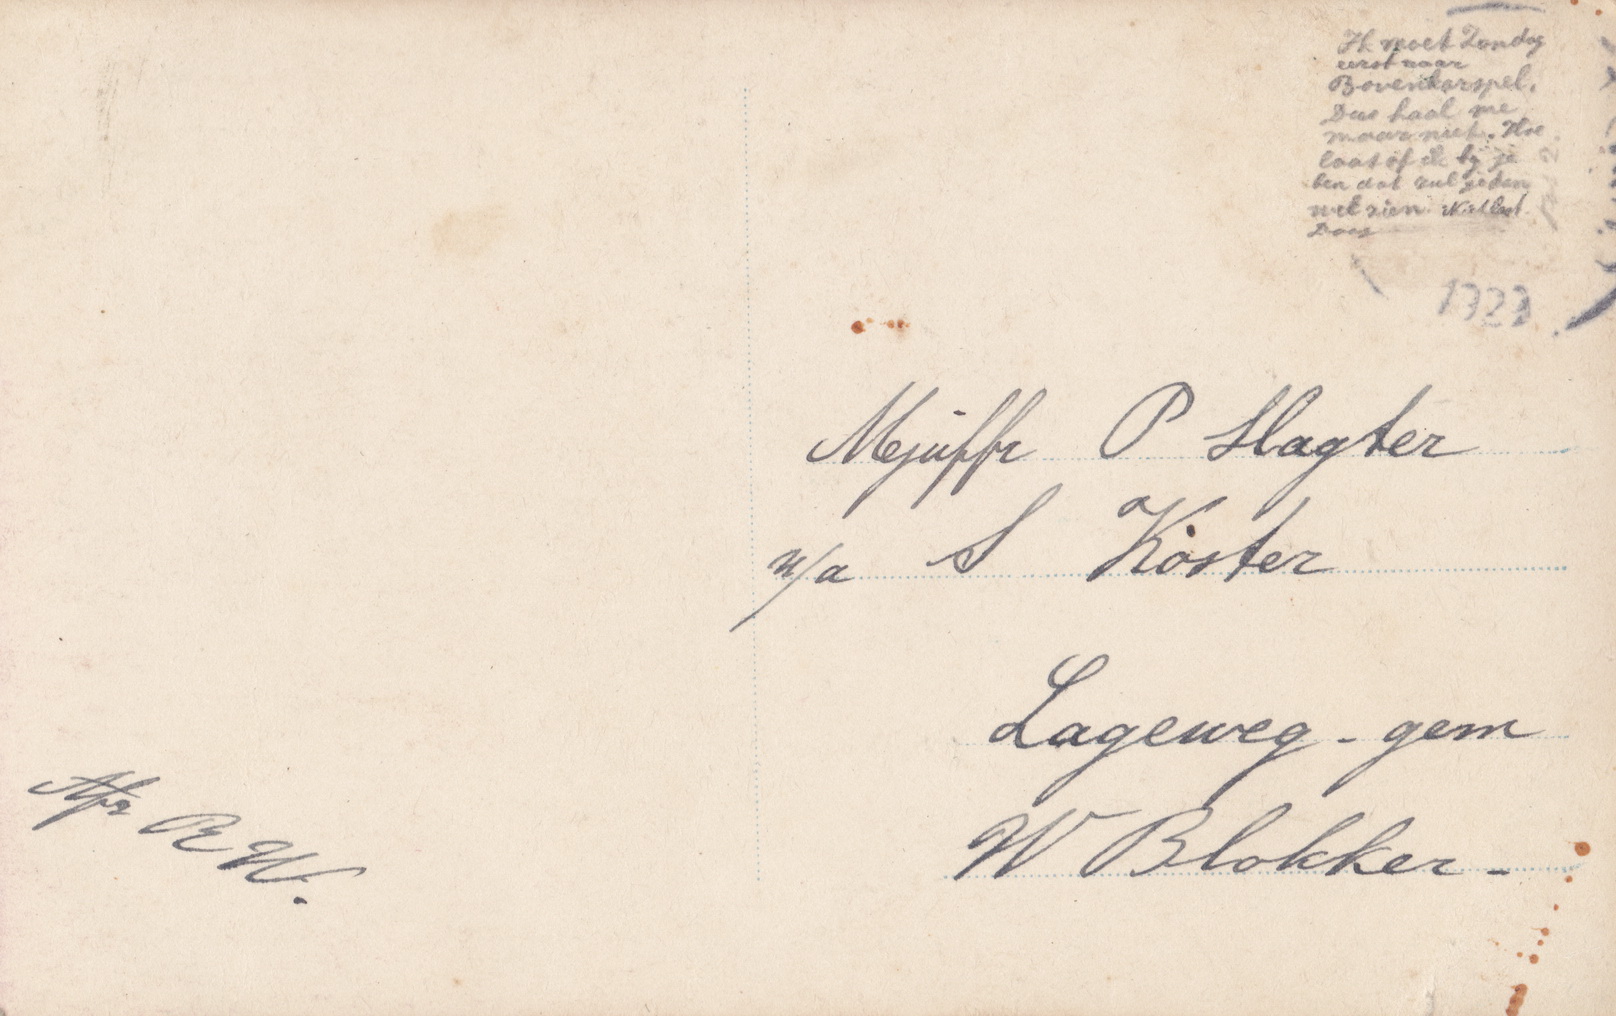 Ik moet Zondag
eerst naar
Bovenkarspel.
Dus haal me
maar niet. Hoe
laat of ik bij je
ben dat zul je dan
wel zien.
Mejuffr P Slagter
p/a S Koster
Lageweg - gem
W Blokker -
Afz R W.